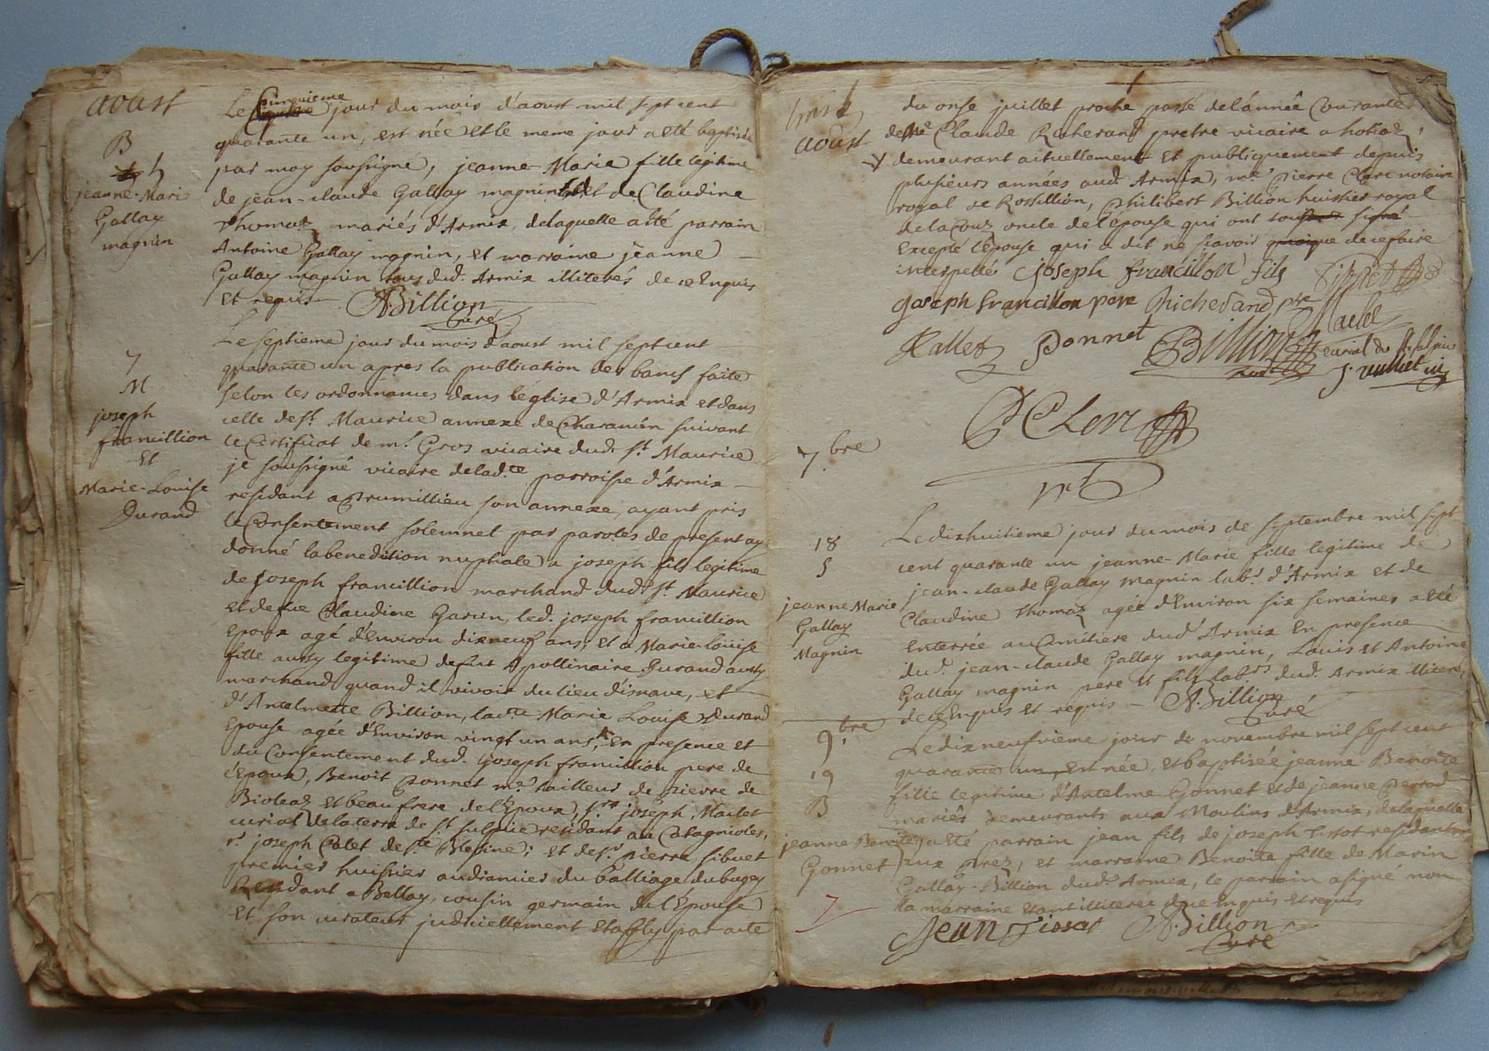 aoust
B
5
jeanne-Marie
Gallay
magnin
Le Cinquieme jour du mois d'aoust mil sept cent
quarante un, est née et le meme jour a eté baptisée
par moy soussigné, jeanne-Marie fille legitime
de jean-claude Gallay magnin et de Claudine
Thomaz mariés d'Armix, delaquelle a été parrain
Antoine Gallay magnin, et marraine jeanne
Gallay magnin tous dud. Armix illiterés de ce Enquis
et requis
A. Billion
curé
7
M
joseph
francillion
et
Marie-Louise
Durand
Le septieme jour du mois d'aoust mil sept cent
quarante un apres la publication des bancs faite
selon les ordonnances dans l'eglise d'Armix et dans
celle de st. Maurice annexe de Charancin suivant
le Certificat de mr. Gros vicaire dud. st. Maurice
je soussigné vicaire de lad.te parroisse d'Armix
residant a prumillieu son annexe, ayant pris
le Consentement solemnel par paroles de present ay
donné la benediction nuptiale a joseph fils legitime
de joseph francillion marchand dud. st. Maurice
et de fue Claudine Garin, led. joseph francillion
Epoux agé d'Environ dixneuf ans, et a Marie-Loüise
fille aussy legitime de fut Appollinaire Durand aussy
marchand quand il vivoit du lieu d'isnave, et
d'Antelmette Billion, lad.te Marie Louise Durand
Epouse agée d'Environ vingt un ans, En presence et
du Consentement dud. joseph francillion pere de
l'epoux, Benoit Ponnet me. tailleur de pierre de
Bioleaz et beaufrere de l'Epoux, sr. joseph Maclet
curial de la terre de st. sulpice residant au Catagnoles,
sr. joseph Calet de ste Blesine; et de sr. pierre sibuet
premier huissier audiancier du balliage du bugey
Residant a Bellay, cousin germain de l'Epouse
et son curateur judiciellement Etably par acte
aoust
du onse juillet proche passé de l'année Courante
de me Claude Richerand pretre vicaire a hotiaz,
demeurant actuellement et publiquement depuis
plusieurs années aud. Armix, me pierre Clerc notaire
royal de Rossillion, philibert Billion huissier royal
de lacouz oncle de l'epouse qui ont signé
Excepté l'epouse qui a dit ne scavoir de ce faire
interpellé
joseph francillon fils
joseph francillon pere
Richerand ptre
Kallet
Ponnet
Billion
P Clerc
7.bre
18
S
jeanne Marie
Gallay
Magnin
Le dixhuitieme jour du mois de septembre mil sept
cent quarante un jeanne-Marie fille legitime de
jean-claude Gallay magnin labr. d'Armix et de
Claudine Thomaz agée d'Environ six semaines a eté
Enterrée au Cemitiere dud. Armix En presence
dud. jean-claude Gallay magnin, Louis et Antoine
Gallay magnin pere et fils labrs dud. Armix illiterés,
de ce Enquis et requis
A. Billion
curé
9.bre
19
B
jeanne Benoite
Gonnet
7
Le dixneufvieme jour de novembre mil sept cent
quarante un, est née, et baptisée jeanne Benoite
fille legitime d'Antelme Gonnet et de jeanne perrod
mariés demeurants aux Moulins d'Armix, de laquelle
a eté parrain jean fils de joseph Tissot residant
aux prez, et marraine Benoite fille de Marin
Gallay-Billion dud. Armix, le parrain a signé non
la marraine Etant illiteree de ce Enquis et requis
Jean Tissot
A. Billion
curé